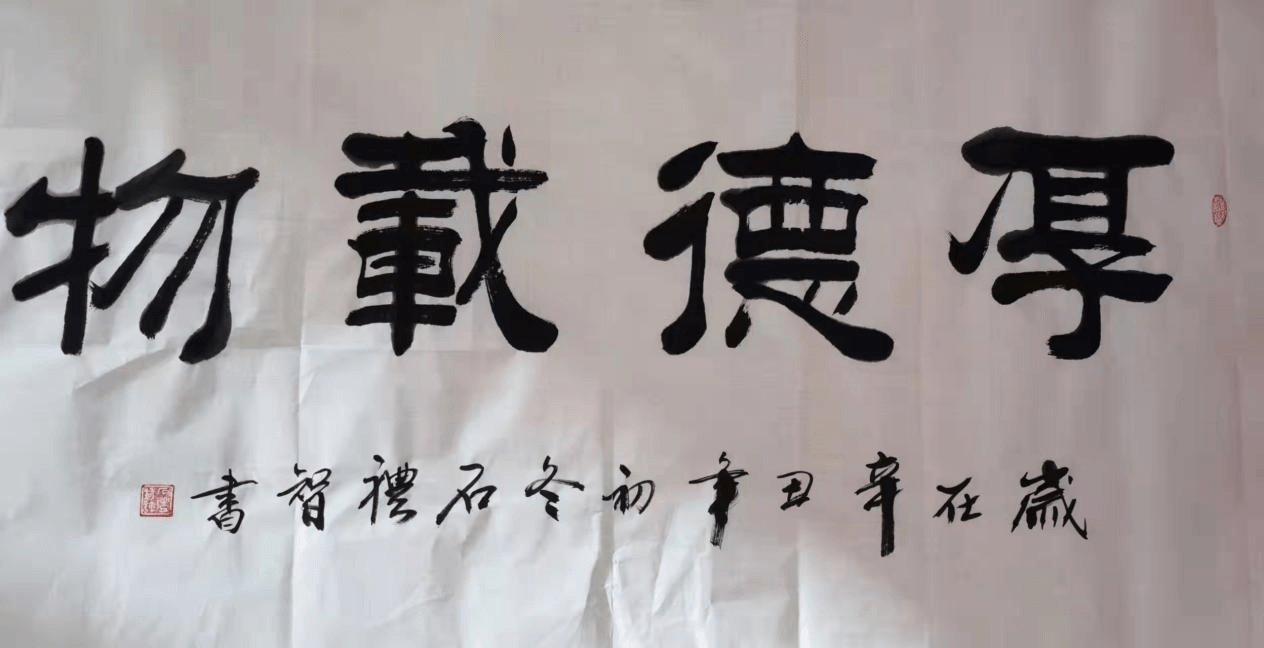 厚德載物
歲在辛丑年初冬石禮智書